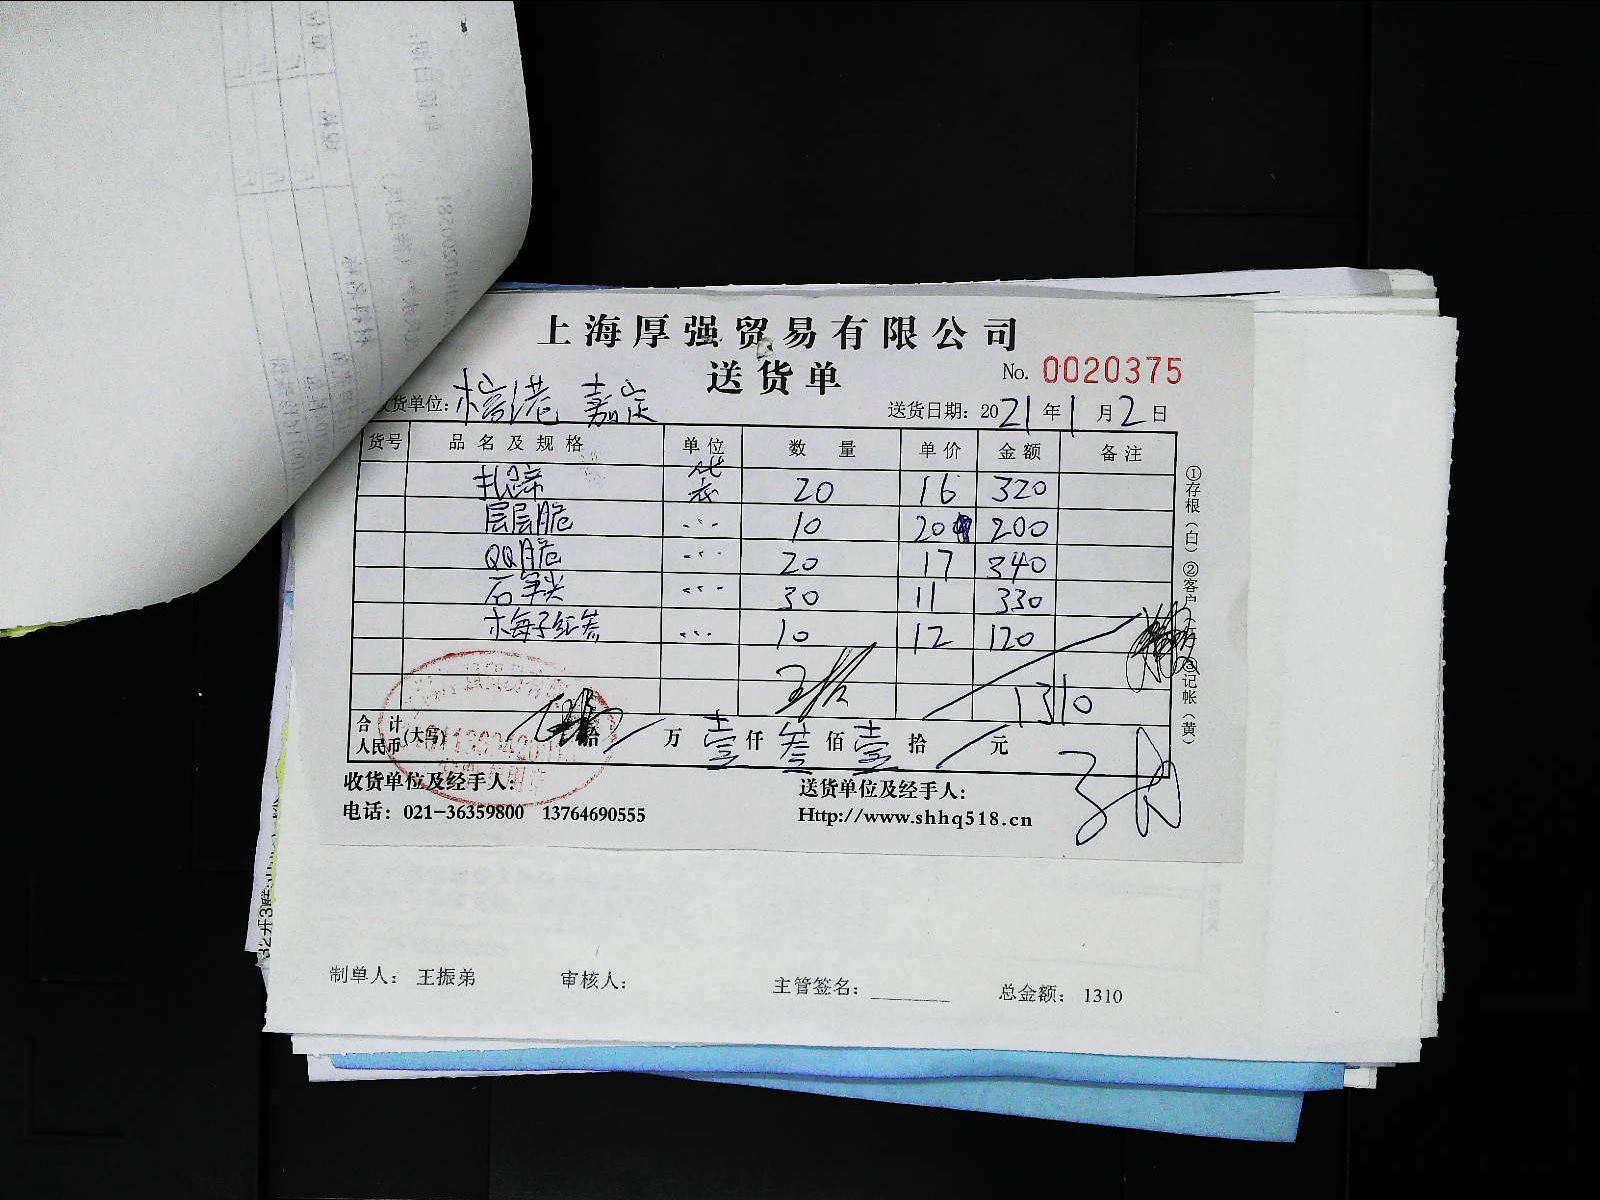 上海厚强贸易有限公司
送货单
No. 0020375
货单位: 嘉定
送货日期: 2021年1月2日
货号 品名及规格 单位 数量 单价 金额 备注
扎蹄 袋 20 16 320
层层脆 … 10 20 200
QQ脆 … 20 17 340
石笋尖 … 30 11 330
10 12 120
1310
合计人民币(大写) 拾 / 万 壹 仟 叁 佰 壹 拾 / 元
收货单位及经手人:
送货单位及经手人:
电话: 021-36359800 13764690555
Http://www.shhq518.cn
①存根(白) ②客户 ③记帐(黄)
制单人: 王振弟 审核人: 主管签名: 总金额: 1310